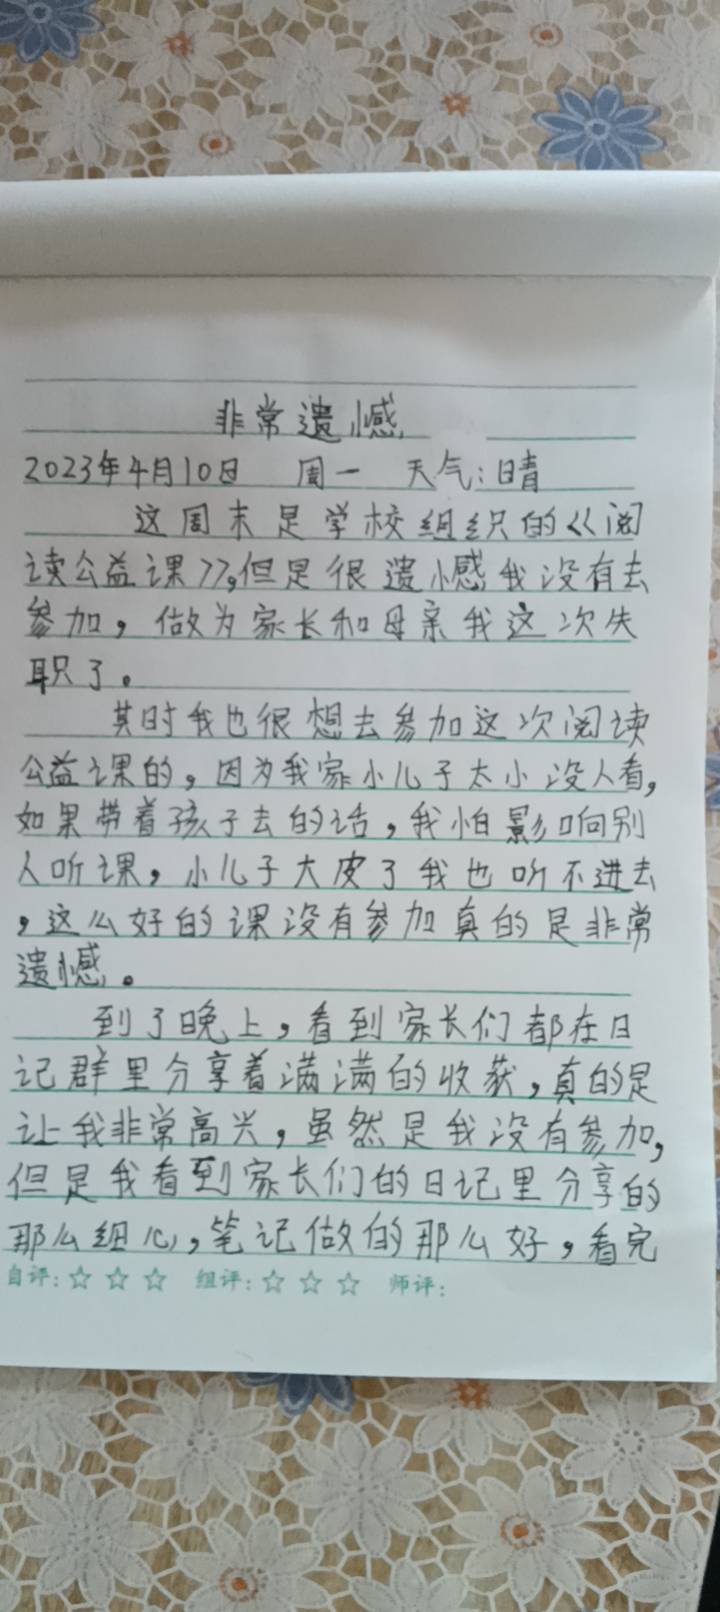 非常遗憾
2023年4月10日 周一 天气:晴
这周末是学校组织的《阅
读公益课》,但是很遗憾我没有去
参加,做为家长和母亲我这次失
职了。
其时我也很想去参加这次阅读
公益课的,因为我家小儿子太小没人看,
如果带着孩子去的话,我怕影响别
人听课,小儿子大皮了我也听不进去
,这么好的课没有参加真的是非常
遗憾。
到了晚上,看到家长们都在日
记群里分享着满满的收获,真的是
让我非常高兴,虽然是我没有参加,
但是我看到家长们的日记里分享的
那么细心,笔记做的那么好,看完
自评:☆ ☆ ☆ 组评:☆ ☆ ☆ 师评: